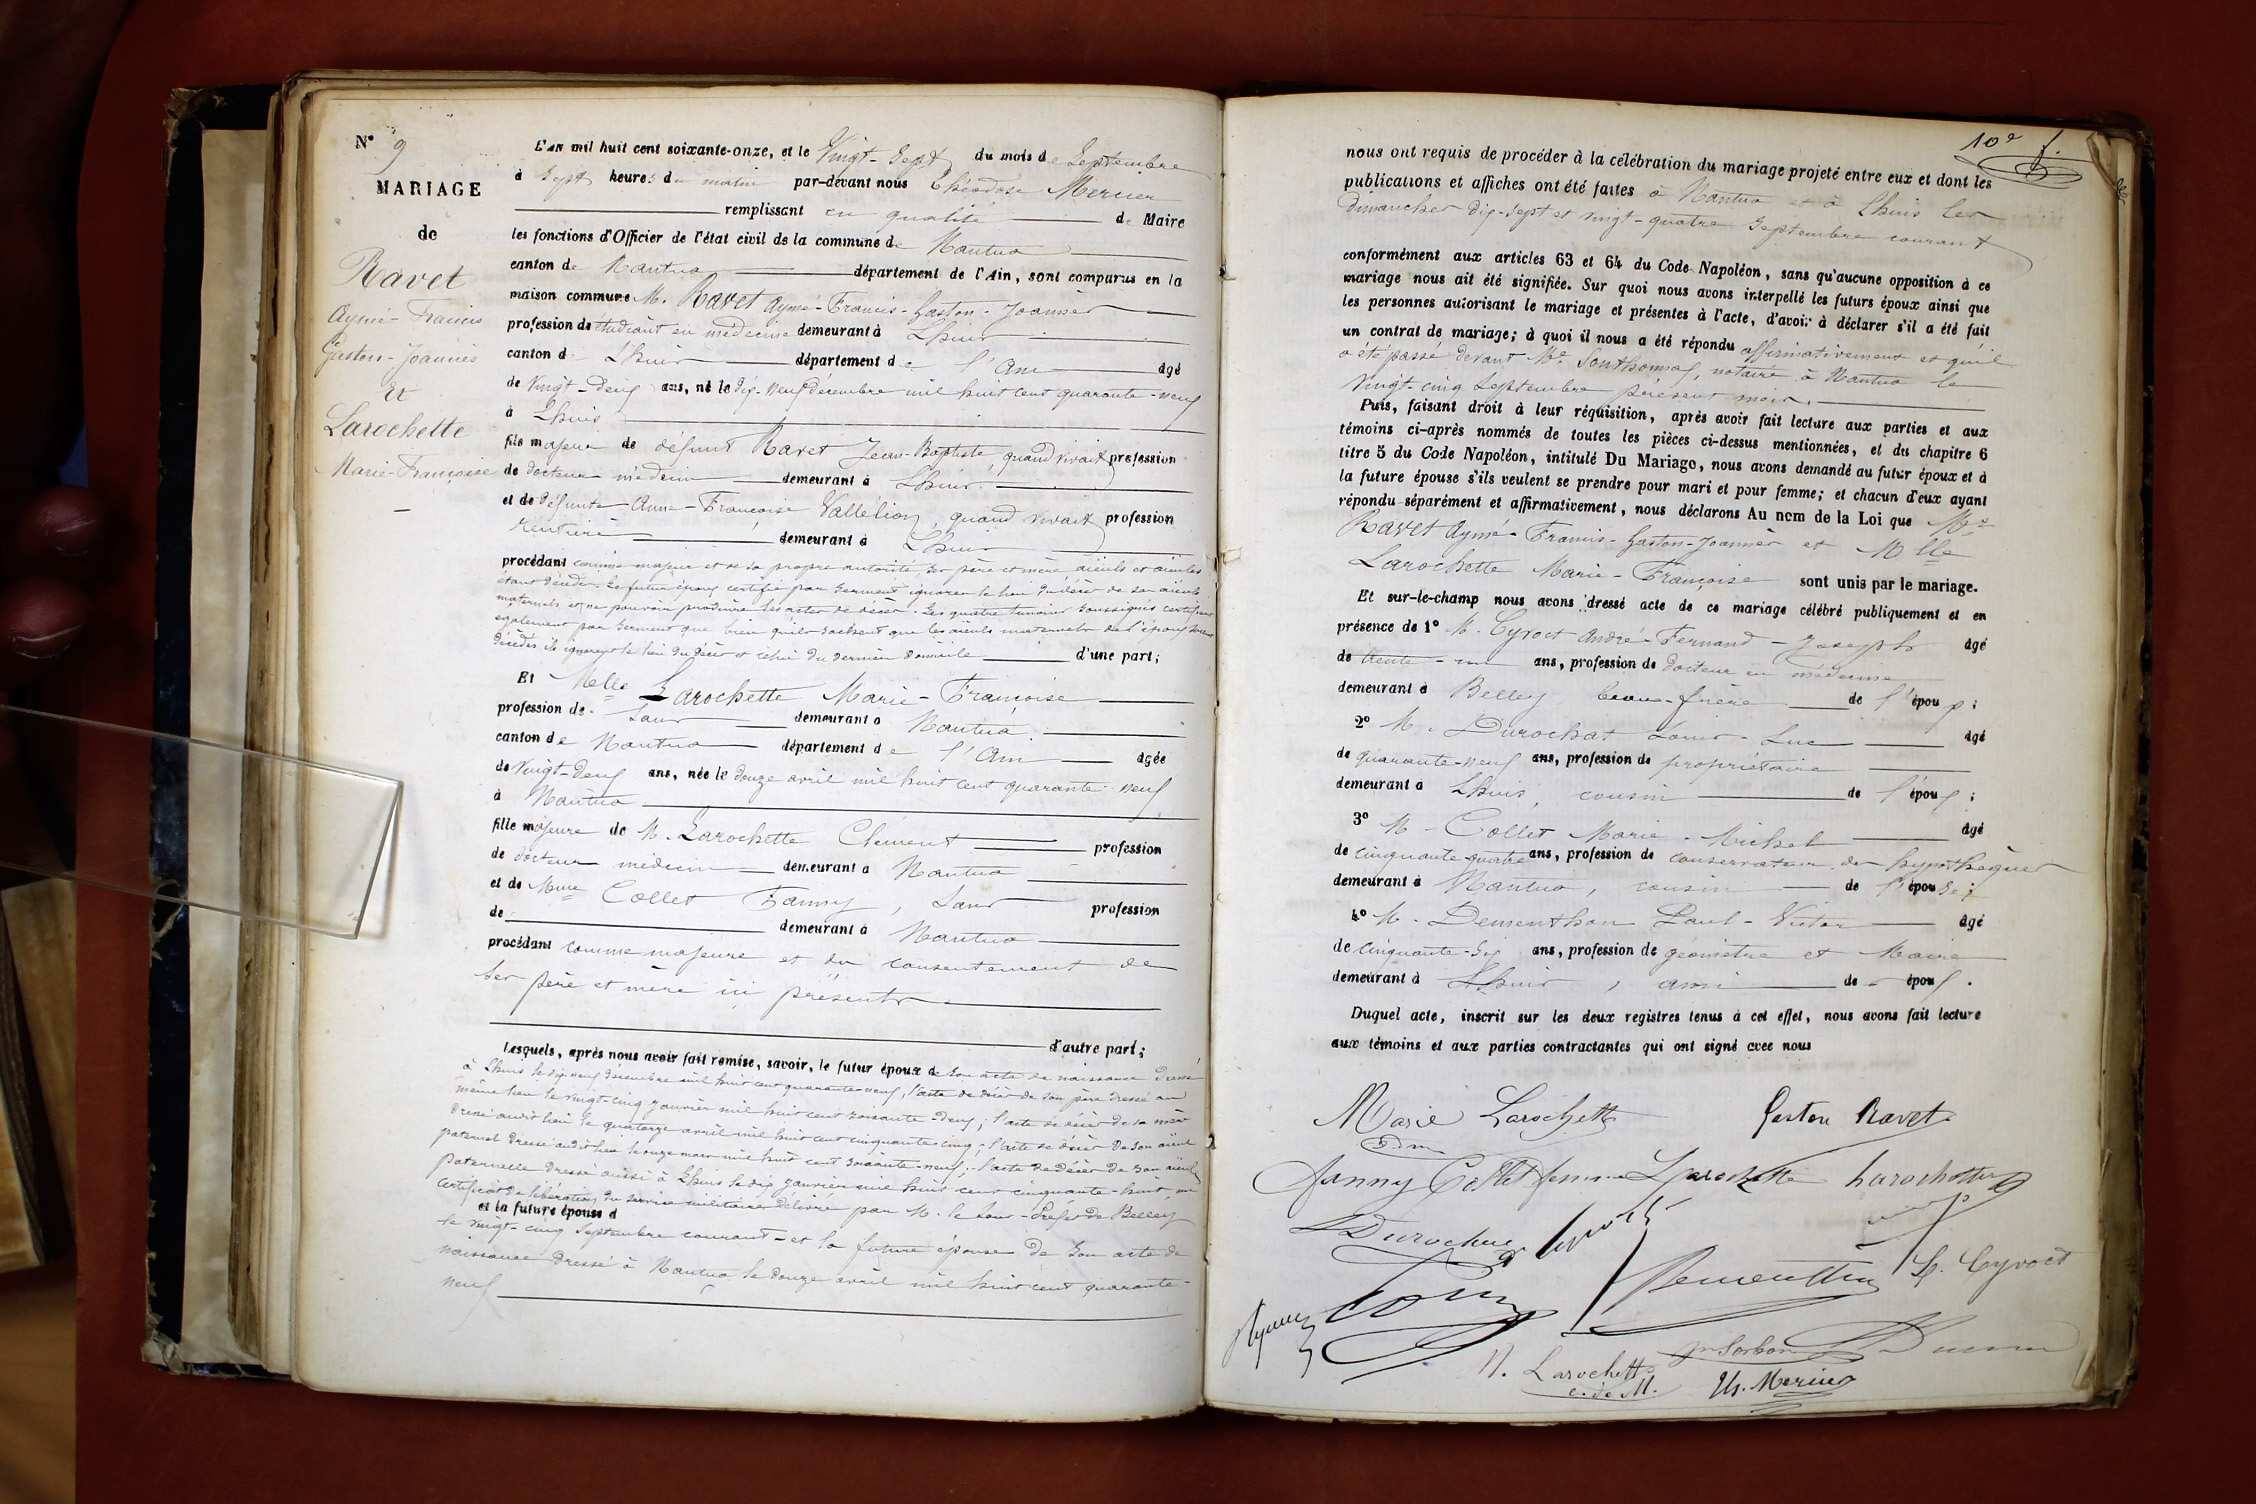 N° 9
MARIAGE
de
Ravet
Aymé-Francis
Gaston-Joannès
et
Larochette
Marie-Françoise
L'an mil huit cent soixante-onze, et le Vingt-Sept du mois de Septembre
à Sept heures du matin par-devant nous Théodose Mercier
remplissant en qualité de Maire
les fonctions d'Officier de l'état civil de la commune de Nantua
canton de Nantua département de l'Ain, sont comparus en la
maison commune M. Ravet Aymé-Francis-Gaston-Joannès
profession de étudiant en médecine demeurant à Lhuis
canton de Lhuis département de l'Ain âgé
de Vingt-deux ans, né le dix-neuf décembre mil huit cent quarante-neuf
à Lhuis
fils majeur de défunt Ravet Jean-Baptiste quand vivait profession
de docteur médecin demeurant à Lhuis
et de défunte Anne-Françoise Vallélion, quand vivait profession
rentière demeurant à Lhuis
procédant comme majeur et de sa propre autorité, ses père et mère aïeuls et aïeules
étant décédés. Le futur époux certifie par serment ignorer le lieu du décès de ses aïeuls
maternels et ne pouvoir produire les actes de décès. Les quatre témoins soussignés certifient
également par serment que bien qu'ils sachent que les aïeuls maternels de l'époux soient
décédés ils ignorent le lieu du décès et celui du dernier domicile d'une part;
Et Melle Larochette Marie-Françoise
profession de sans demeurant à Nantua
canton de Nantua département de l'Ain agée
de Vingt-deux ans, née le douze avril mil huit cent quarante-neuf
à Nantua
fille majeure de M. Larochette Clément profession
de docteur médecin demeurant à Nantua
et de Mme Collet Fanny, sans profession
de demeurant à Nantua
procédant comme majeure et du consentement de
ses père et mère ici présents
d'autre part;
Lesquels, après nous avoir fait remise, savoir, le futur époux de son acte de naissance dressé
à Lhuis le dix-neuf décembre mil huit cent quarante-neuf, l'acte de décès de son père dressé au
même lieu le vingt-cinq janvier mil huit cent soixante-deux; l'acte de décès de sa mère
dressé audit lieu le quatorze avril mil huit cent cinquante-cinq; l'acte de décès de son aïeul
paternel dressé audit lieu le onze mars mil huit cent soixante-neuf; l'acte de décès de son aïeule
paternelle dressé aussi à Lhuis le dix janvier mil huit cent cinquante-huit, un
certificat de libération du service militaire délivré par M. le Sous-Préfet de Belley
et la future épouse d
le vingt-cinq Septembre courant - et la future épouse de son acte de
naissance dressé à Nantua le douze avril mil huit cent quarante-
neuf
10e f.
nous ont requis de procéder à la célébration du mariage projeté entre eux et dont les
publications et affiches ont été faites à Nantua et à Lhuis les
dimanches dix-sept et vingt-quatre Septembre courant
conformément aux articles 63 et 64 du Code Napoléon, sans qu'aucune opposition à ce
mariage nous ait été signifiée. Sur quoi nous avons interpellé les futurs époux ainsi que
les personnes autorisant le mariage et présentes à l'acte, d'avoir à déclarer s'il a été fait
un contrat de mariage; à quoi il nous a été répondu affirmativement et qu'il
a été passé devant Me Southonnax, notaire à Nantua le
Vingt-cinq Septembre présent mois.
Puis, faisant droit à leur réquisition, après avoir fait lecture aux parties et aux
témoins ci-après nommés de toutes les pièces ci-dessus mentionnées, et du chapitre 6
titre 5 du Code Napoléon, intitulé Du Mariage, nous avons demandé au futur époux et à
la future épouse s'ils veulent se prendre pour mari et pour femme; et chacun d'eux ayant
répondu séparément et affirmativement, nous déclarons Au nom de la Loi que Mr
Ravet Aymé-Francis-Gaston-Joannès et Melle
Larochette Marie-Françoise sont unis par le mariage.
Et sur-le-champ nous avons dressé acte de ce mariage célébré publiquement et en
présence de 1° M. Cyvoct André-Fernand-Joseph âgé
de trente-un ans, profession de docteur en médecine
demeurant à Belley beau-frère de l'époux;
2° M. Durochat Louis-Luc âgé
de quarante-neuf ans, profession de propriétaire
demeurant à Lhuis, cousin de l'époux;
3° M. Collet Marie-Michel âgé
de cinquante quatre ans, profession de conservateur des hypothèques
demeurant à Nantua, cousin de l'épouse;
4° M. Dementhon Paul-Victor âgé
de cinquante-six ans, profession de géomètre et Maire
demeurant à Lhuis, ami de époux.
Duquel acte, inscrit sur les deux registres tenus à cet effet, nous avons fait lecture
aux témoins et aux parties contractantes qui ont signé avec nous
Marie Larochette Gaston Ravet
Fanny Collet femme Larochette Larochette
L Durochat
Dementhon L. Cyvoct
N. Larochette
Th. Mercier